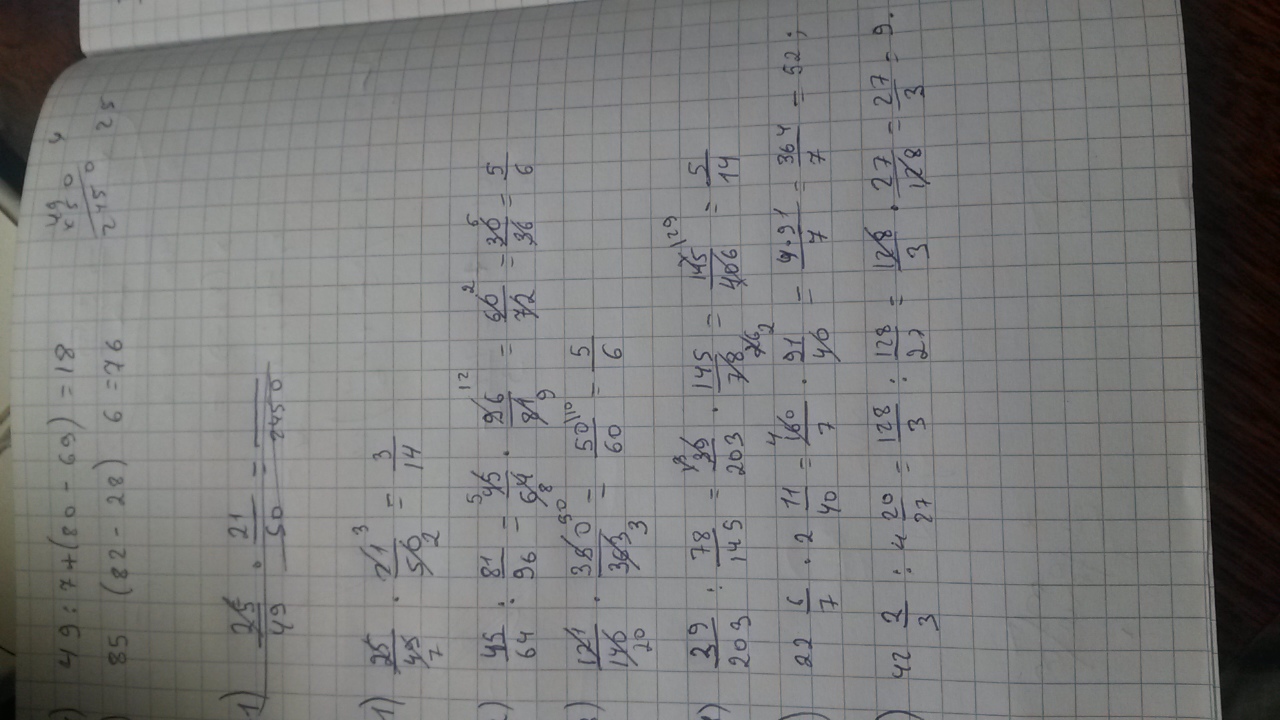 49:7+(80-69)=18
85 (82-28) 6=76
49
x50
2450
4
25
1) 25/49 · 21/50 = —/2450
1) 25/49 7 · 21 3/50 2 = 3/14
45/64 : 81/96 = 5 45/64 8 · 96 12/81 9 = 60 2/72 = 30 5/36 = 5/6
39/203 : 78/145 = 39/203 · 145/78 = 145/406 = 5/14
22 6/7 · 2 11/40 = 4 160/7 · 91/40 = 4·91/7 = 364/7 = 52;
42 2/3 : 4 20/27 = 128/3 : 128/27 = 128/3 · 27/128 = 27/3 = 9.